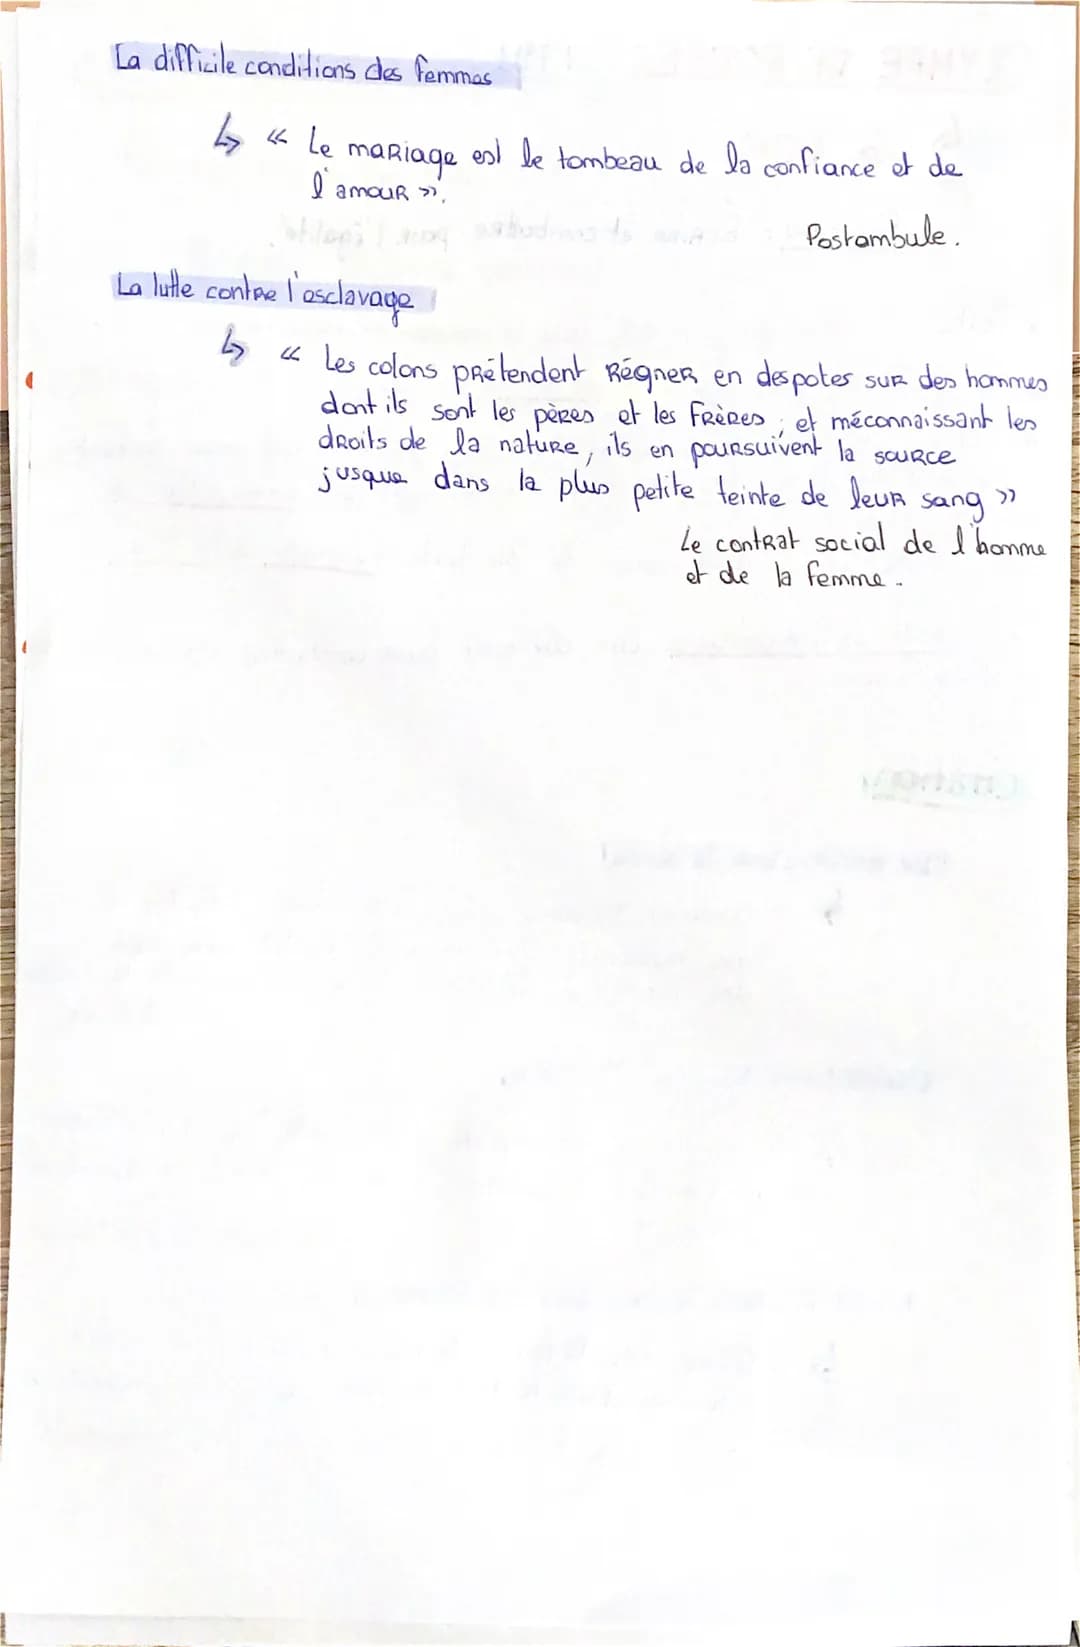 La difficile conditions des femmes
↳ « Le mariage est le tombeau de la confiance et de
l'amour ».
Postambule.
La lutte contre l'esclavage
↳ « Les colons prétendent régner en despotes sur des hommes
dont ils sont les pères et les frères ; et méconnaissant les
droits de la nature, ils en poursuivent la source
jusque dans la plus petite teinte de leur sang »
Le contrat social de l'homme
et de la femme.